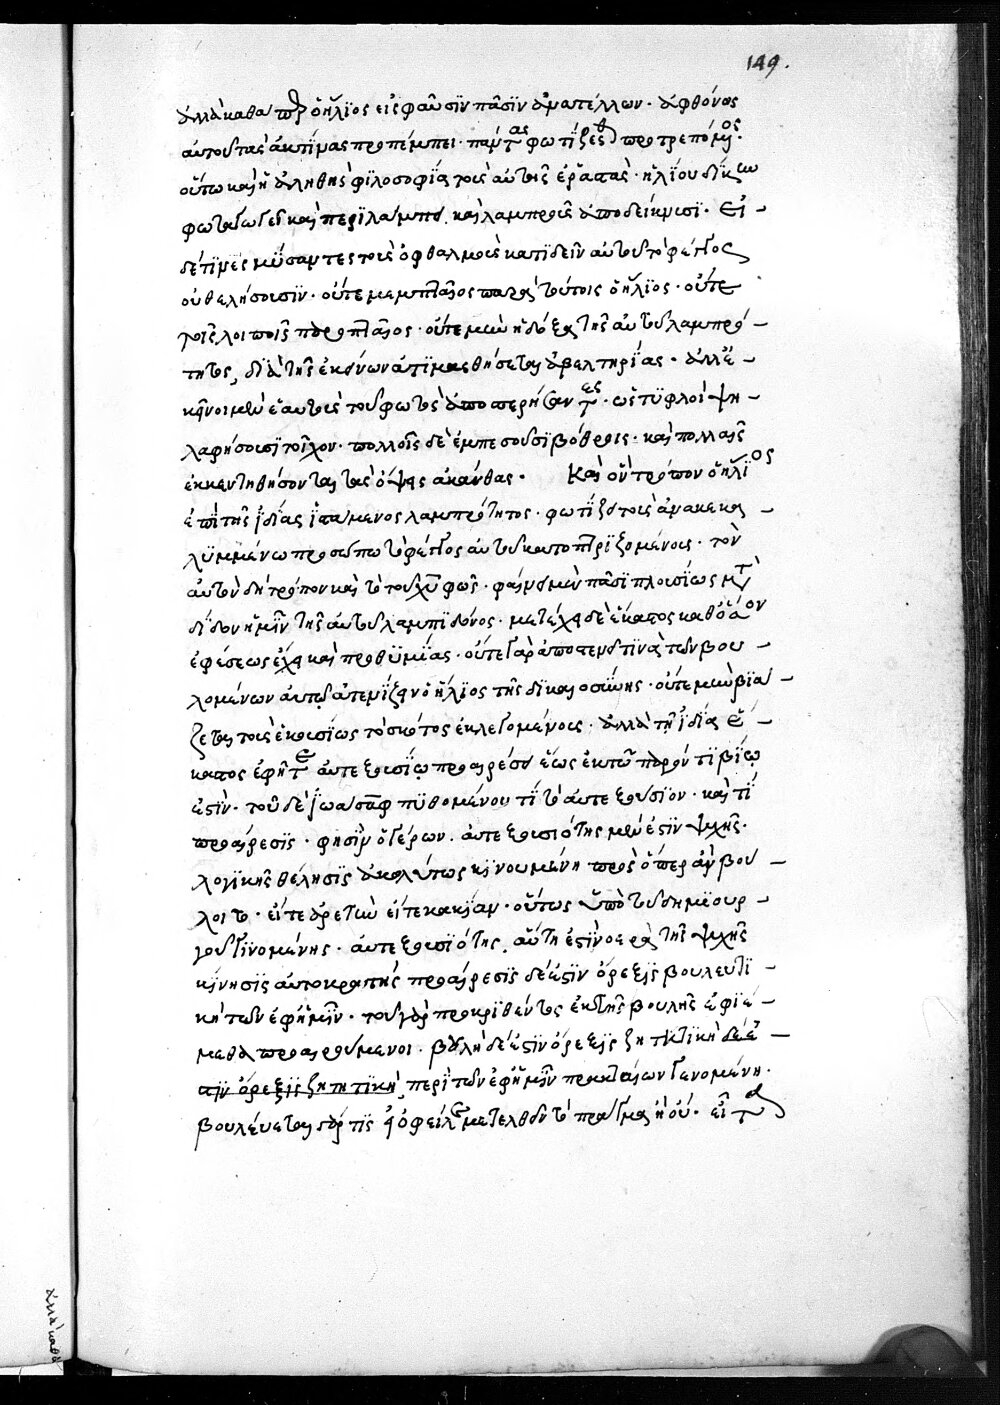 149.
ἀλλὰ καθάπερ ὁ ἥλϊος εἰς φαῦσϊν πᾶσϊν ἀνατέλλων · ἀφθόνως
αὐτοῦ τὰς ἀκτῖνας προπέμπει · πάντας φωτίζεσθαι προτρεπόμενος ·
οὕτω καὶ ἡ ἀληθὴς φϊλοσοφία τοὺς αὐτῆς ἐραστὰς · ἡλίου δίκην
φωταγωγεῖ καὶ περϊλάμπει καὶ λαμπροὺς ἀποδείκνυσϊ · εἰ
δέ τϊνες μύσαντες τοὺς ὀφθαλμοὺς κατϊδεῖν αὐτοῦ τὸ φέγγος
οὐ θελήσουσϊν · οὔτε μεμπταῖος παρὰ τούτοις ὁ ἥλϊος · οὔτε
τοῖς λοιποῖς · οὔτε μὴν ἡ δόξα τῆς αὐτοῦ λαμπρό
τητος, δϊὰ τῆς ἐκείνων ἀτϊμασθήσεται ἀβελτηρΐας · ἀλλ' ἐ
κεῖνοι μὲν ἑαυτοὺς τοῦ φωτὸς ἀποστερήσαντες · ὡς τϋφλοὶ ψη
λαφήσουσϊ τοῖχον · πολλοῖς δὲ ἐμπεσοῦσϊ βόθροις · καὶ πολλαῖς
ἐκκεντηθήσονται τὰς ὄψεις ἀκάνθαις · Καὶ ὃν τρόπον ὁ ἥλϊος
ἐπὶ τῆς ϊδίας ϊστάμενος λαμπρότητος · φωτίζει τοὺς ἀνακεκα
λϋμμένω προσώπω τὸ φέγγος αὐτοῦ κατοπτρϊζομένους · τὸν
αὐτὸν δὴ τρόπον καὶ τὸ τοῦ χυ φῶς · φαίνει μὲν πᾶσϊ πλουσίως μετα
δϊδὸν ἡμῖν τῆς αὐτοῦ λαμπϊδόνος · μετέχει δὲ ἕκαστος καθ' ὅσον
ἐφέσεως ἔχει καὶ προθϋμΐας · οὔτε γὰρ ἀποστερεῖ τϊνὰ τῶν βου
λομένων αὐτῶ ἀτενΐζειν ὁ ἥλϊος τῆς δϊκαιοσύνης · οὔτε μὴν βϊά
ζεται τοὺς ἑκουσίως τὸ σκότος ἐκλεγομένους · ἀλλὰ τῇ ϊδίᾳ ἕ
καστος ἐφῆται αὐτεξουσΐῳ προαιρέσει ἕως ἐν τῷ παρόντϊ βίῳ
ἐστὶν · τοῦ δὲ ϊωάσαφ πϋθομένου τΐ τὸ αὐτεξούσϊον · καὶ τΐ
προαίρεσϊς · φησὶν ὁ γέρων · αὐτεξουσιότης μέν ἐστϊν ψυχῆς
λογϊκῆς θέλησϊς ἀκωλύτως κϊνουμένη πρὸς ὅπερ ἂν βού
λοιτο · εἴτε ἀρετὴν εἴτε κακΐαν · οὕτως ὑπὸ τοῦ δημϊουρ
γοῦ γϊνομένης · αὐτεξουσϊότης αὖθϊς ἐστϊ νοερᾶς τῆς ψυχῆς
κΐνησϊς αὐτοκρατὴς προαίρεσϊς δέ ἐστϊν ὄρεξϊς βουλευτϊ
κὴ τῶν ἐφ' ἡμῖν · τοῦ γὰρ προκρϊθέντος ἐκ τῆς βουλῆς ἐφϊέ
μεθα προαιρούμενοι · βουλὴ δέ ἐστϊν ὄρεξϊς ζητητϊκὴ δέ ἐ
στϊν ὄρεξϊς ζητητϊκὴ, περὶ τῶν ἐφ' ἡμῖν πρακτέων γϊνομένη ·
βουλεύεται γάρ τϊς εἰ ὀφείλει μετελθεῖν τὸ πρᾶγμα ἢ οὔ · εἶτα
ἀλλὰ καθὰ